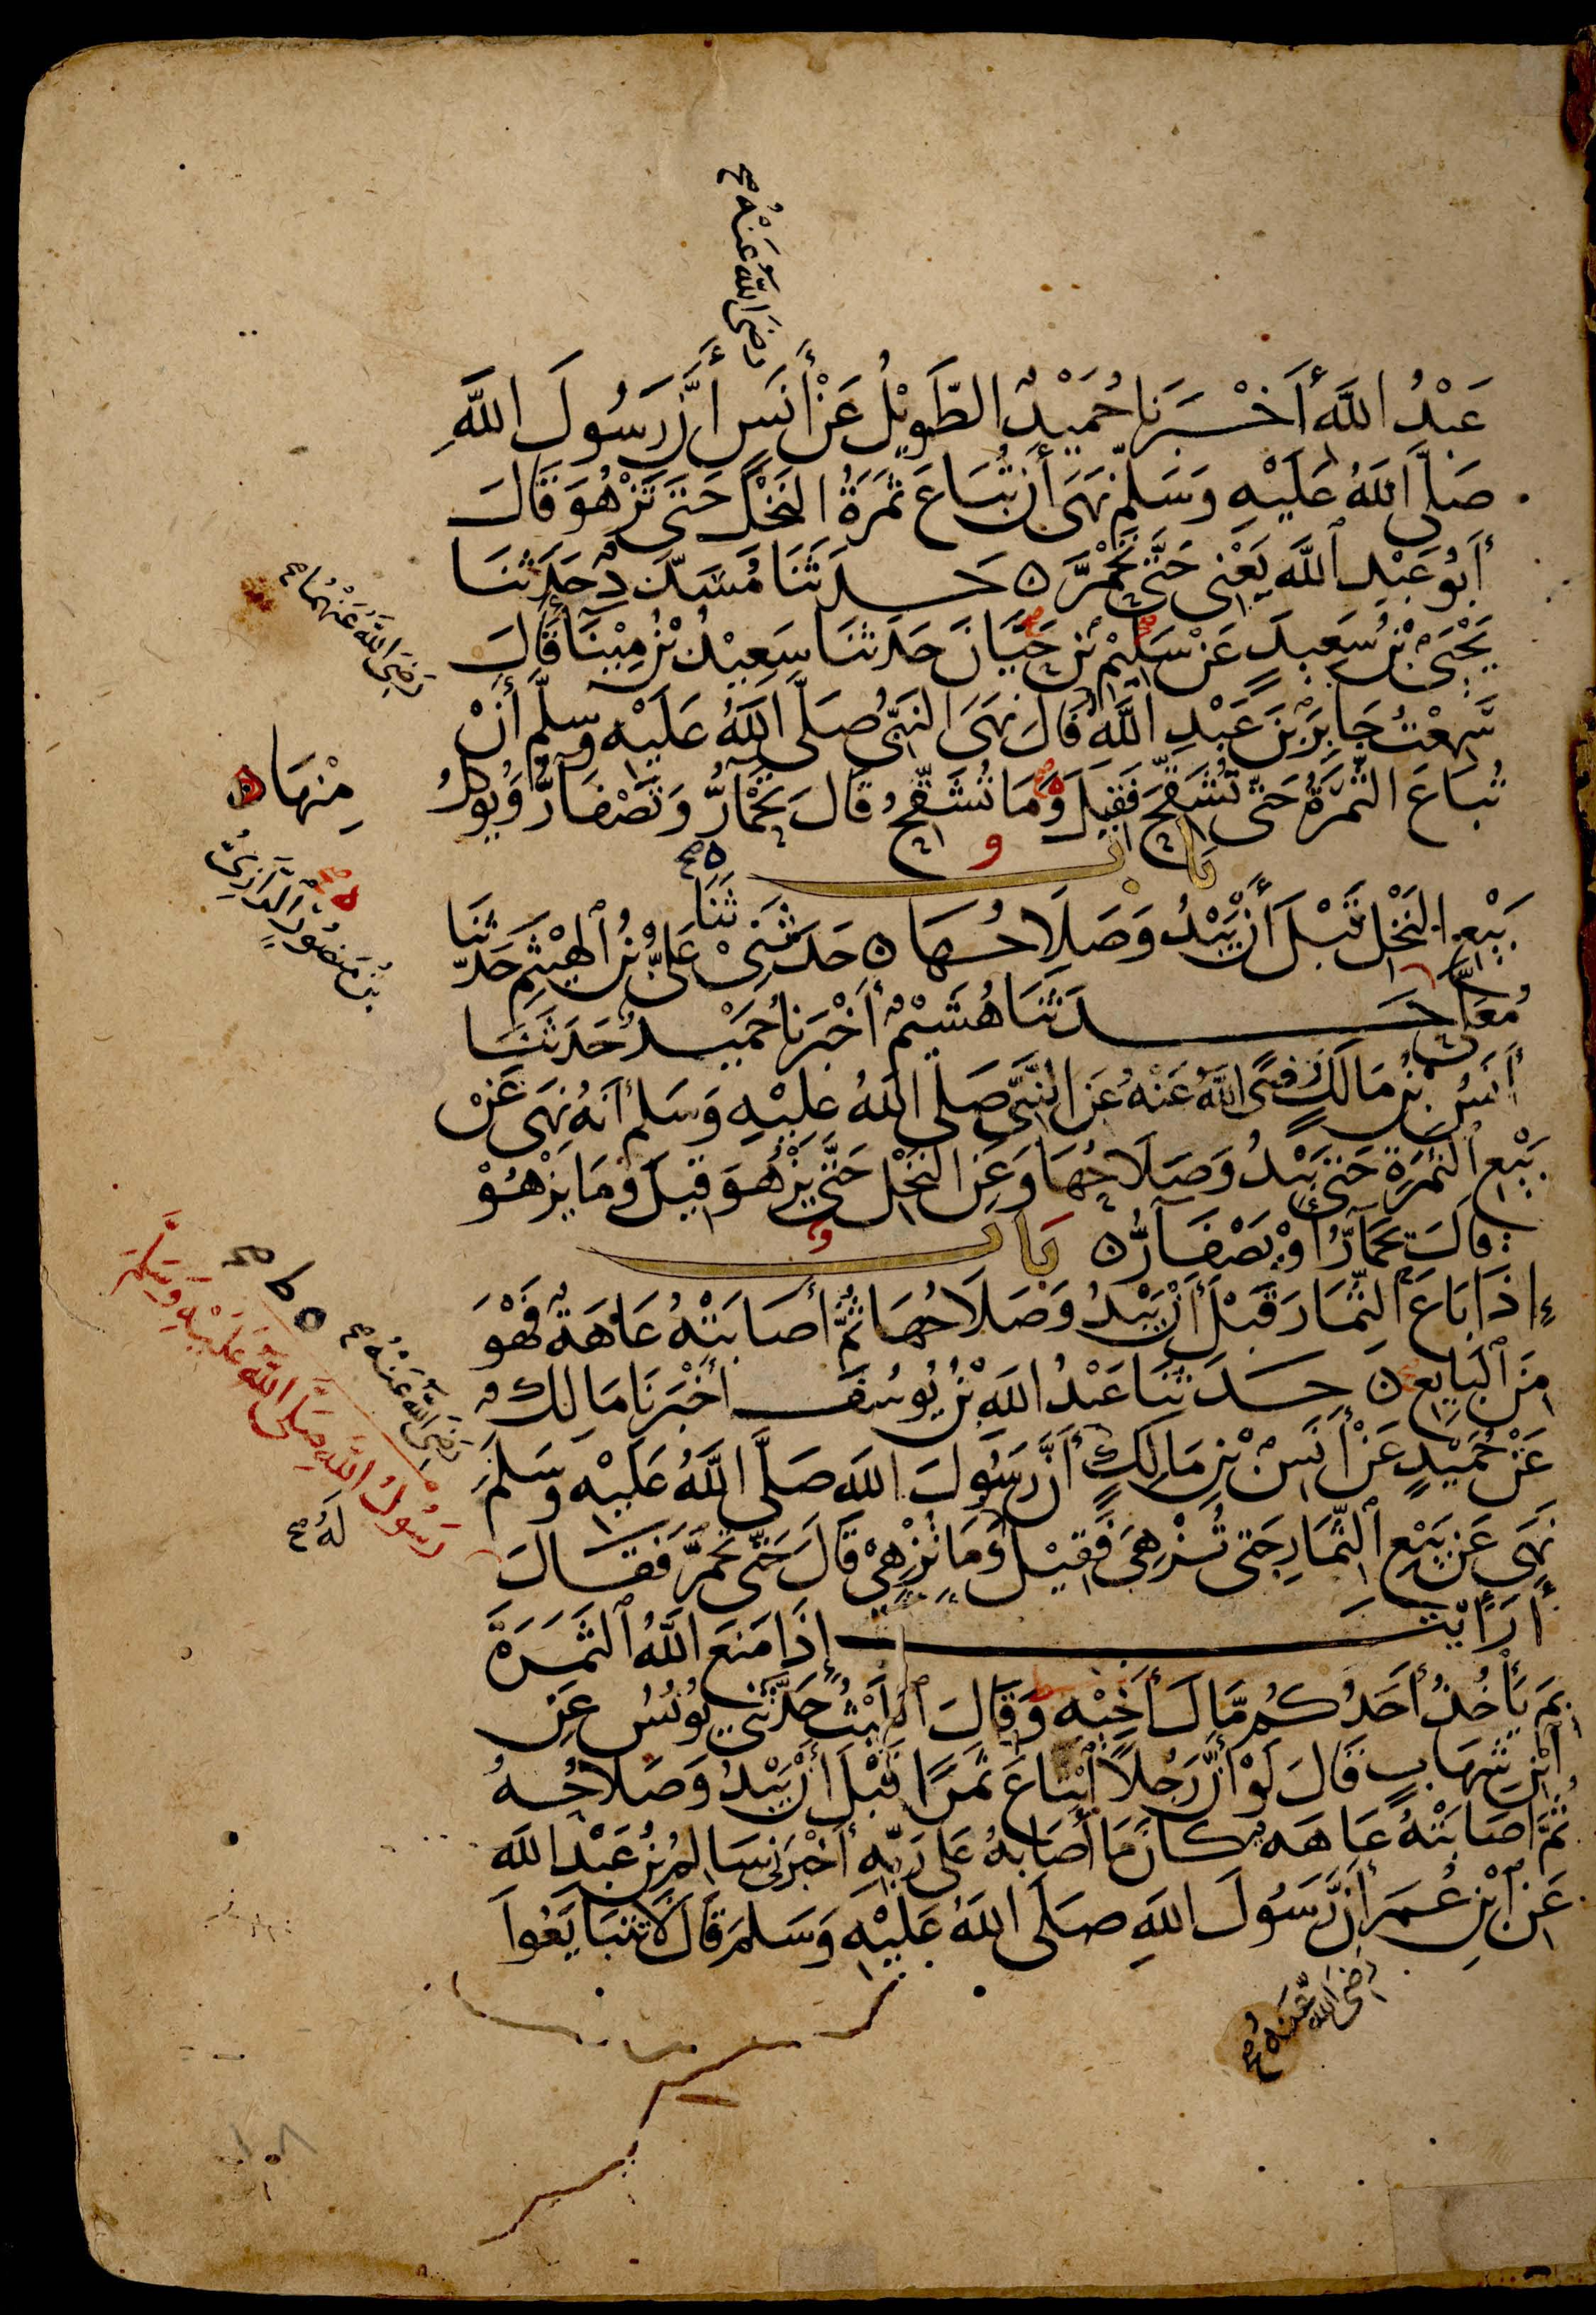 رَضِىَ اللهُ عَنْهُ صح
عَبْدُ اللَّهِ أَخْبَرَنَا حُمَيْدٌ الطَّوِيْلُ عَنْ أَنَسٍ أَنَّ رَسُولَ اللَّهِ
صَلَّى اللهُ عَلَيْهِ وَسَلَّمَ نَهَى أَنْ تُبَاعَ ثَمَرَةُ النَّخْلِ حَتَّى تَزْهُوَ قَالَ
أَبُو عَبْدِ اللَّهِ يَعْنِى حَتَّى تَحْمَرَّ ه حَدَّثَنَا مُسَدَّدٌ حَدَّثَنَا
يَحْيَى بْنُ سَعِيدٍ عَنْ سَلِيْمِ بْنِ حَيَّانَ حَدَّثَنَا سَعِيْدُ بْنُ مِيْنَا قَالَ
رَضِىَ اللهُ عَنْهُمَا صح
سَمِعْتُ جَابِرَ بْنَ عَبْدِ اللَّهِ قَالَ نَهَى النَّبِىُّ صَلَّى اللهُ عَلَيْهِ وَسَلَّمَ أَنْ
تُبَاعَ الثَّمَرَةُ حَتَّى تُشَقِّحَ فَقِيلَ وَمَا تُشَقِّحُ قَالَ تَحْمَارُّ وَتَصْفَارُّ وَيُوكَلُ
مِنْهَا ه
بَاب
بَيْعِ النَّخْلِ قَبْلَ أَنْ يَبْدُوَ صَلَاحُهَا ه حَدَّثَنِىْ عَلِىُّ بْنُ الْهَيْثَمِ حَدَّثَنَا
ثَنَا ه صح
بْنُ مَنْصُوْرٍ الرَّازِىُّ ه صح
مُعَلًّى حَدَّثَنَا هُشَيْمٌ أَخْبَرَنَا حُمَيْدٌ حَدَّثَنَا
أَنَسُ بْنُ مَالِكٍ رَضِىَ اللَّهُ عَنْهُ عَنِ النَّبِىِّ صَلَّى اللهُ عَلَيْهِ وَسَلَّمَ أَنَّهُ نَهَى عَنْ
بَيْعِ الثَّمَرَةِ حَتَّى يَبْدُوَ صَلَاحُهَا وَعَنِ النَّخْلِ حَتَّى يَزْهُوَ قِيلَ وَمَا يَزْهُوْ
قَالَ يَحْمَارُّ أَوْ يَصْفَارُّ ه بَاب
إِذَا بَاعَ الثِّمَارَ قَبْلَ أَنْ يَبْدُوَ صَلَاحُهَا ثُمَّ أَصَابَتْهُ عَاهَةٌ فَهْوَ
مِنَ الْبَايِعِ ه حَدَّثَنَا عَبْدُ اللَّهِ بْنُ يُوسُفَ أَخْبَرَنَا مَالِكٌ
عَنْ حُمَيْدٍ عَنْ أَنَسِ بْنِ مَالِكٍ أَنَّ رَسُولَ اللَّهِ صَلَّى اللَّهُ عَلَيْهِ وَسَلَّمَ
رَضِىَ اللهُ عَنْهُ صح
نَهَى عَنْ بَيْعِ الثِّمَارِ حَتَّى تُزْهِىَ فَقِيْلَ وَمَا تُزْهِىْ قَالَ حَتَّى تَحْمَرَّ فَقَالَ
رَسُولُ اللهِ صَلَّى اللهُ عَلَيْهِ وَسَلَّمَ ه ط صح
لَهُ صح
أَرَأَيْتَ إِذَا مَنَعَ اللَّهُ الثَّمَرَةَ
بِمَ يَأْخُذُ أَحَدُكُمْ مَّالَ أَخِيْهِ وَقَالَ اللَّيْثُ حَدَّثَنِى يُونُسُ عَنِ
ابْنِ شِهَابٍ قَالَ لَوْ أَنَّ رَجُلًا ابْتَاعَ ثَمَرًا قَبْلَ أَنْ يَبْدُوَ صَلَاحُهُ
ثُمَّ أَصَابَتْهُ عَاهَةٌ كَانَ مَا أَصَابَهُ عَلَى رَبِّهِ أَخْبَرَنِى سَالِمُ بْنُ عَبْدِ اللَّهِ
عَنِ ابْنِ عُمَرَ أَنَّ رَسُولَ اللهِ صَلَّى اللهُ عَلَيْهِ وَسَلَّمَ قَالَ لَا تَتَبَايَعُوا
رَضِىَ اللهُ عَنْهُ صح